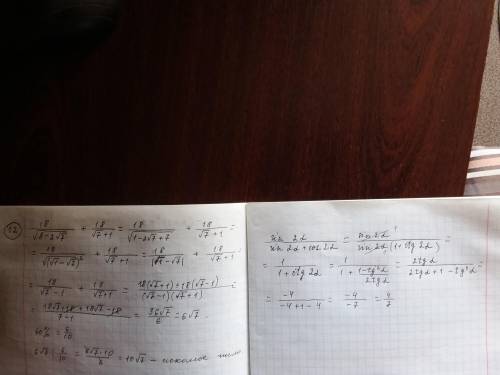 12) 18/√(8-2√7) + 18/(√7+1) = 18/√(1-2√7+7) + 18/(√7+1) =
= 18/√(√1-√7)² + 18/(√7+1) = 18/|√1-√7| + 18/(√7+1) =
= 18/(√7-1) + 18/(√7+1) = (18(√7+1)+18(√7-1))/((√7-1)(√7+1)) =
= (18√7+18+18√7-18)/(7-1) = 36√7/6 = 6√7
60% = 6/10
6√7 : 6/10 = 6√7·10/6 = 10√7 - искомое число
sin 2α/(sin 2α + cos 2α) = sin 2α/(sin 2α(1+ctg 2α)) =
= 1/(1+ctg 2α) = 1/(1+(1-tg²α)/(2tgα)) = 2tgα/(2tgα+1-tg²α) =
= -4/(-4+1-4) = -4/-7 = 4/7